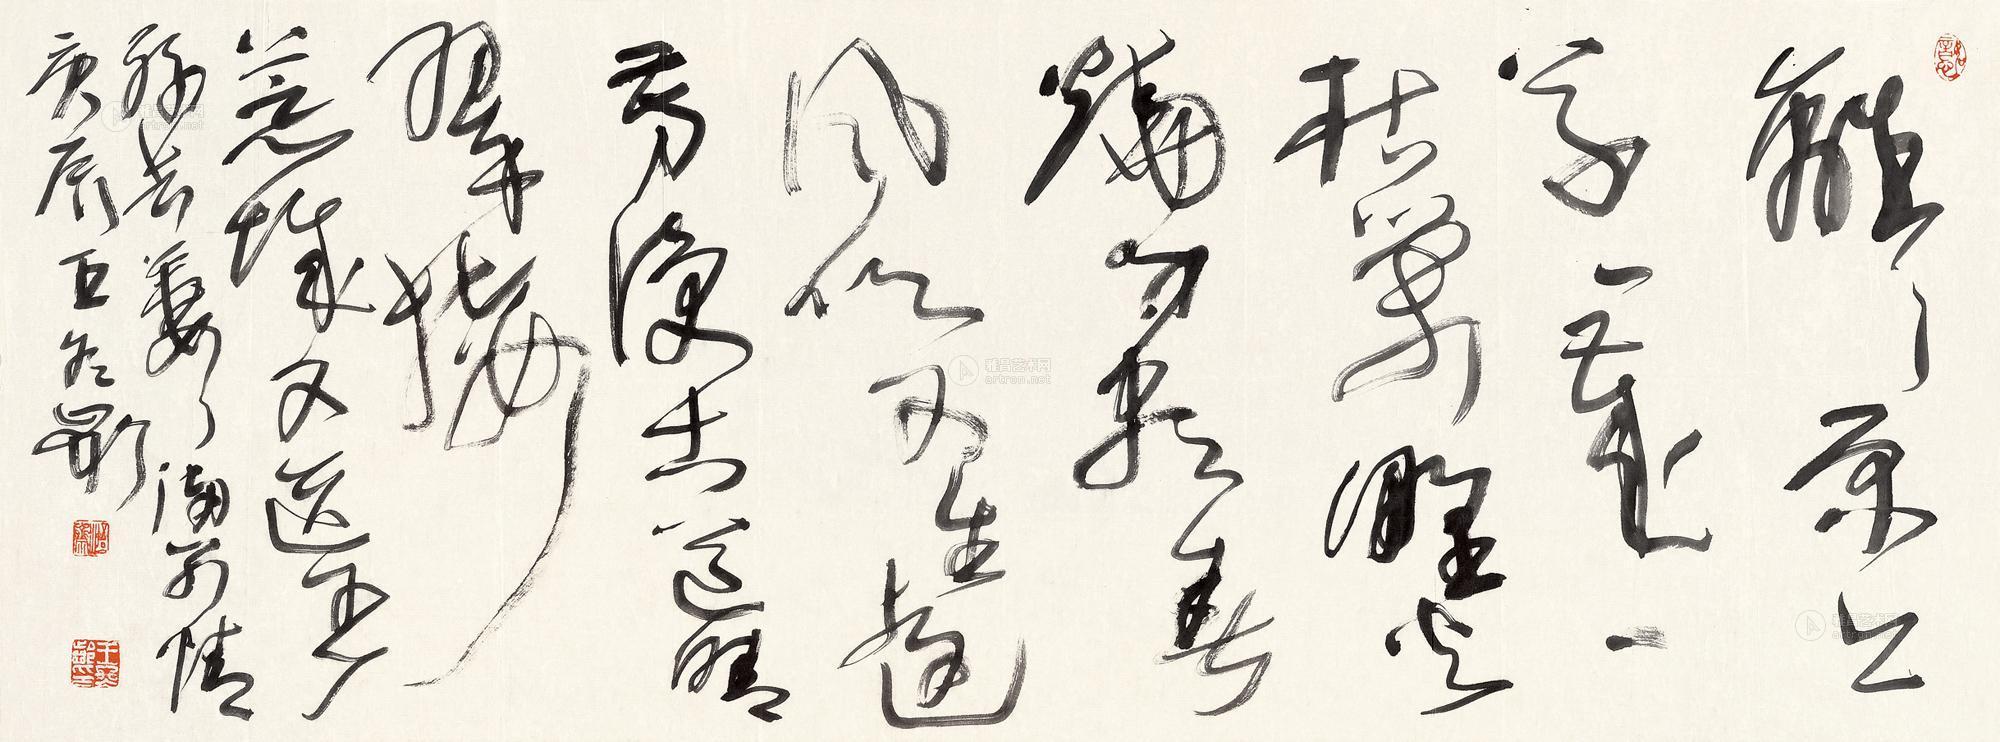 離〻原上
草一歲一
枯榮野火
燒不盡春
風吹又生遠
芳侵古道晴
翠接
荒城又送王
孫去萋〻滿別情
庚辰王冬齡
雅昌艺术网
artron.net